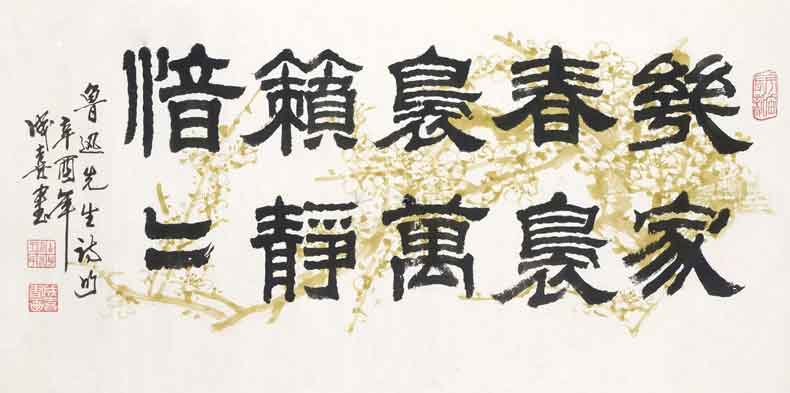 幾家
春裊
裊萬
籟靜
愔二
魯迅先生詩句
辛酉年
成喜書